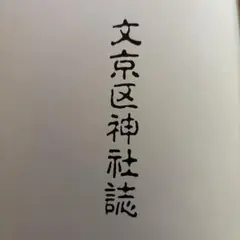 文京区神社誌